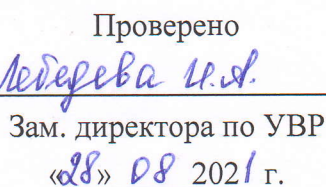 Проверено
Лебедева И.А.
Зам. директора по УВР
«28» 08 2021 г.